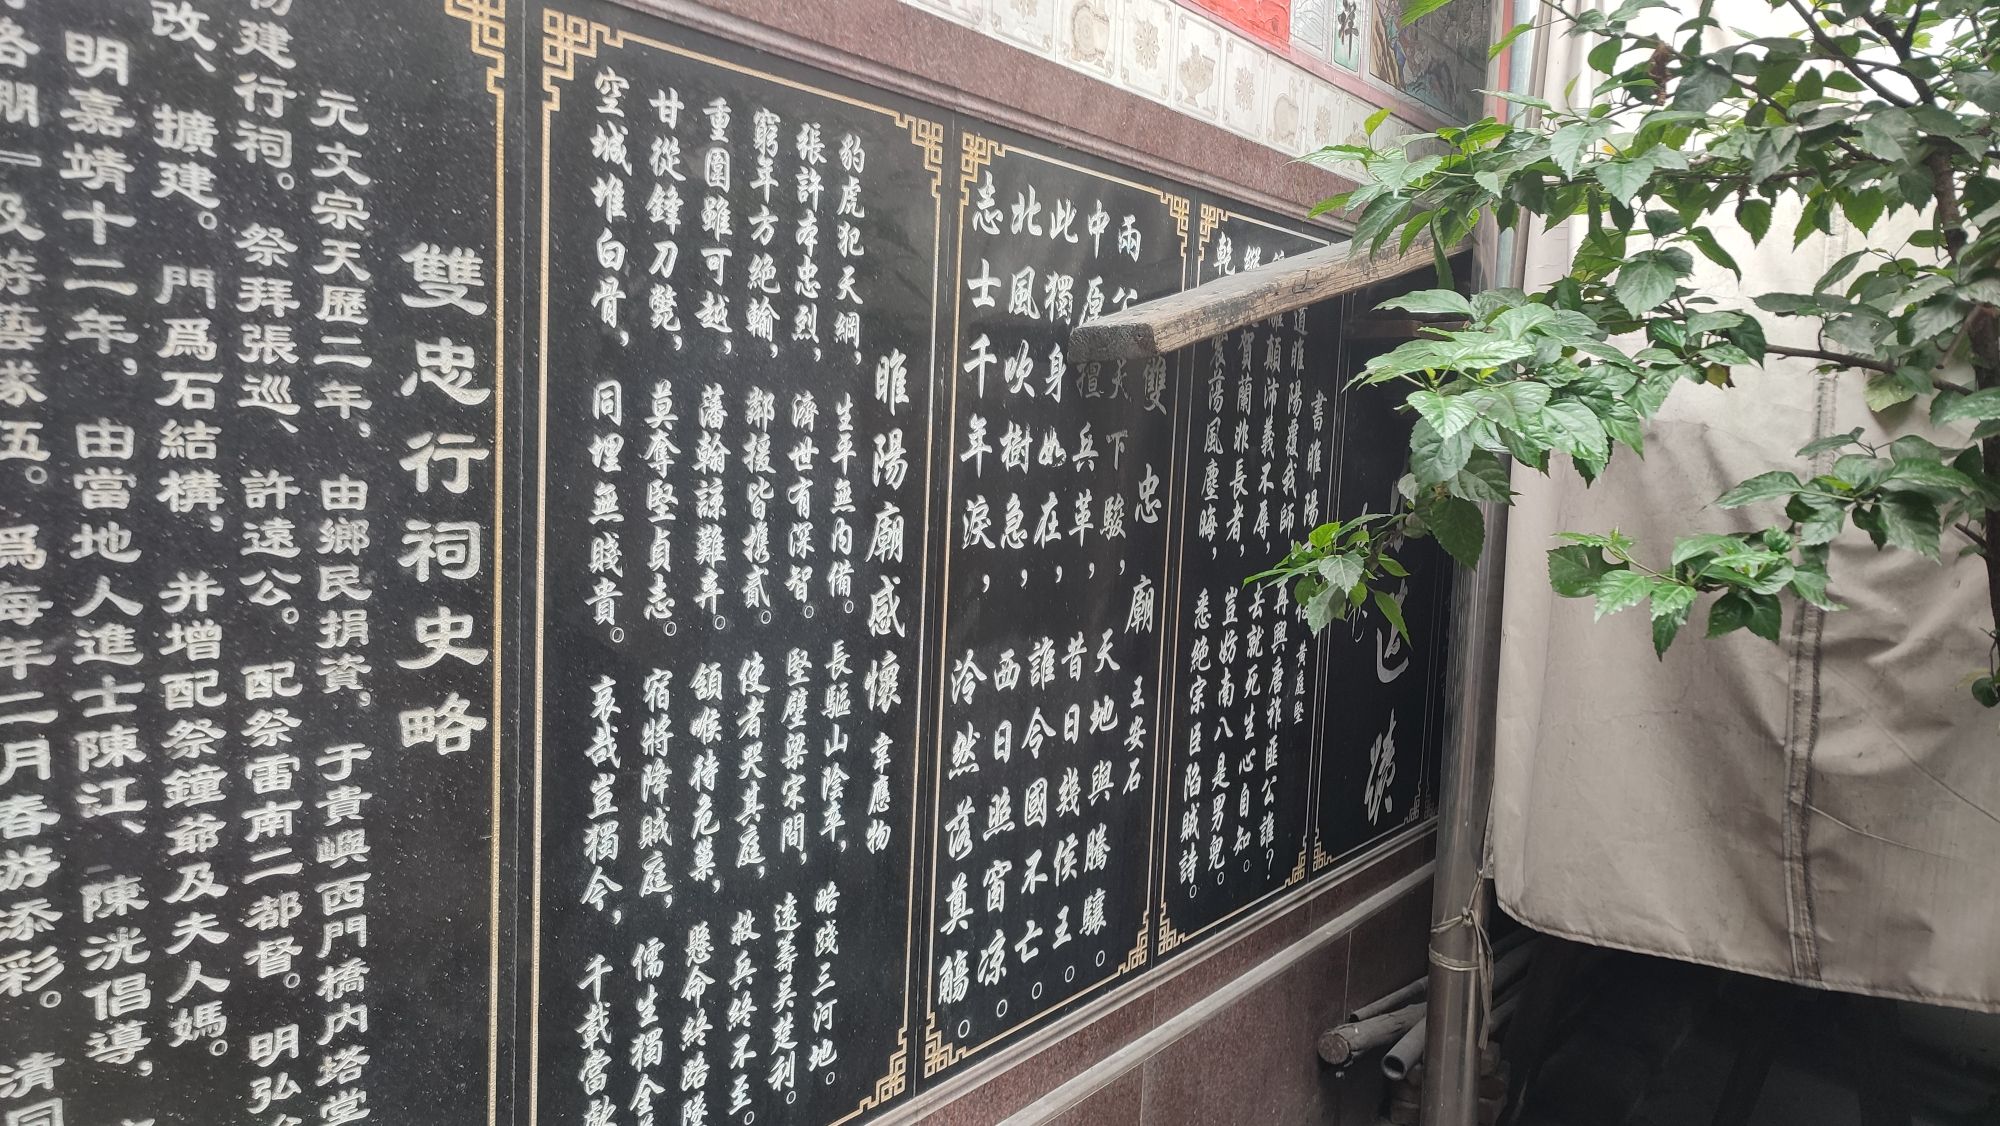 蹟
書睢陽 黃庭堅
道睢陽覆我師 再興唐祚匪公誰?
顛沛義不辱, 去就死生心自知。
賀蘭非長者, 豈妨南八是男兒。
乾 蕩風塵晦, 悉絶宗臣陷賊詩。
雙忠廟 王安石
兩公天下駿, 天地與騰驤。
中原擅兵革, 昔日幾侯王。
此獨身如在, 誰令國不亡。
北風吹樹急, 西日照窗凉。
志士千年淚, 泠然落奠觴。
睢陽廟感懷 韋應物
豹虎犯天綱, 生平無内備。 長驅山陰卒, 略踐三河地。
張許本忠烈, 濟世有深智。 堅壁梁宋間, 遠籌吴楚利。
窮年方絶輸, 鄰援皆攜貳。 使者哭其庭, 救兵終不至。
重圍雖可越, 藩翰諒難弃。 領喉待危巢, 懸命終路隧
甘從鋒刀斃, 莫奪堅貞志。 宿將降賊庭, 儒生獨全
空城堆白骨, 同埋無賤貴。 哀哉豈獨今, 千載當歔
雙忠行祠史略
元文宗天歷二年,由鄉民捐資,于貴嶼西門橋内塔堂
建行祠。祭拜張巡、許遠公。配祭雷南二都督。明弘
改、擴建。門爲石結構,并增配祭鐘爺及夫人媽。
明嘉靖十二年,由當地人進士陳江、陳洸倡導,
藝隊伍。爲每年二月春游添彩。清同
祥